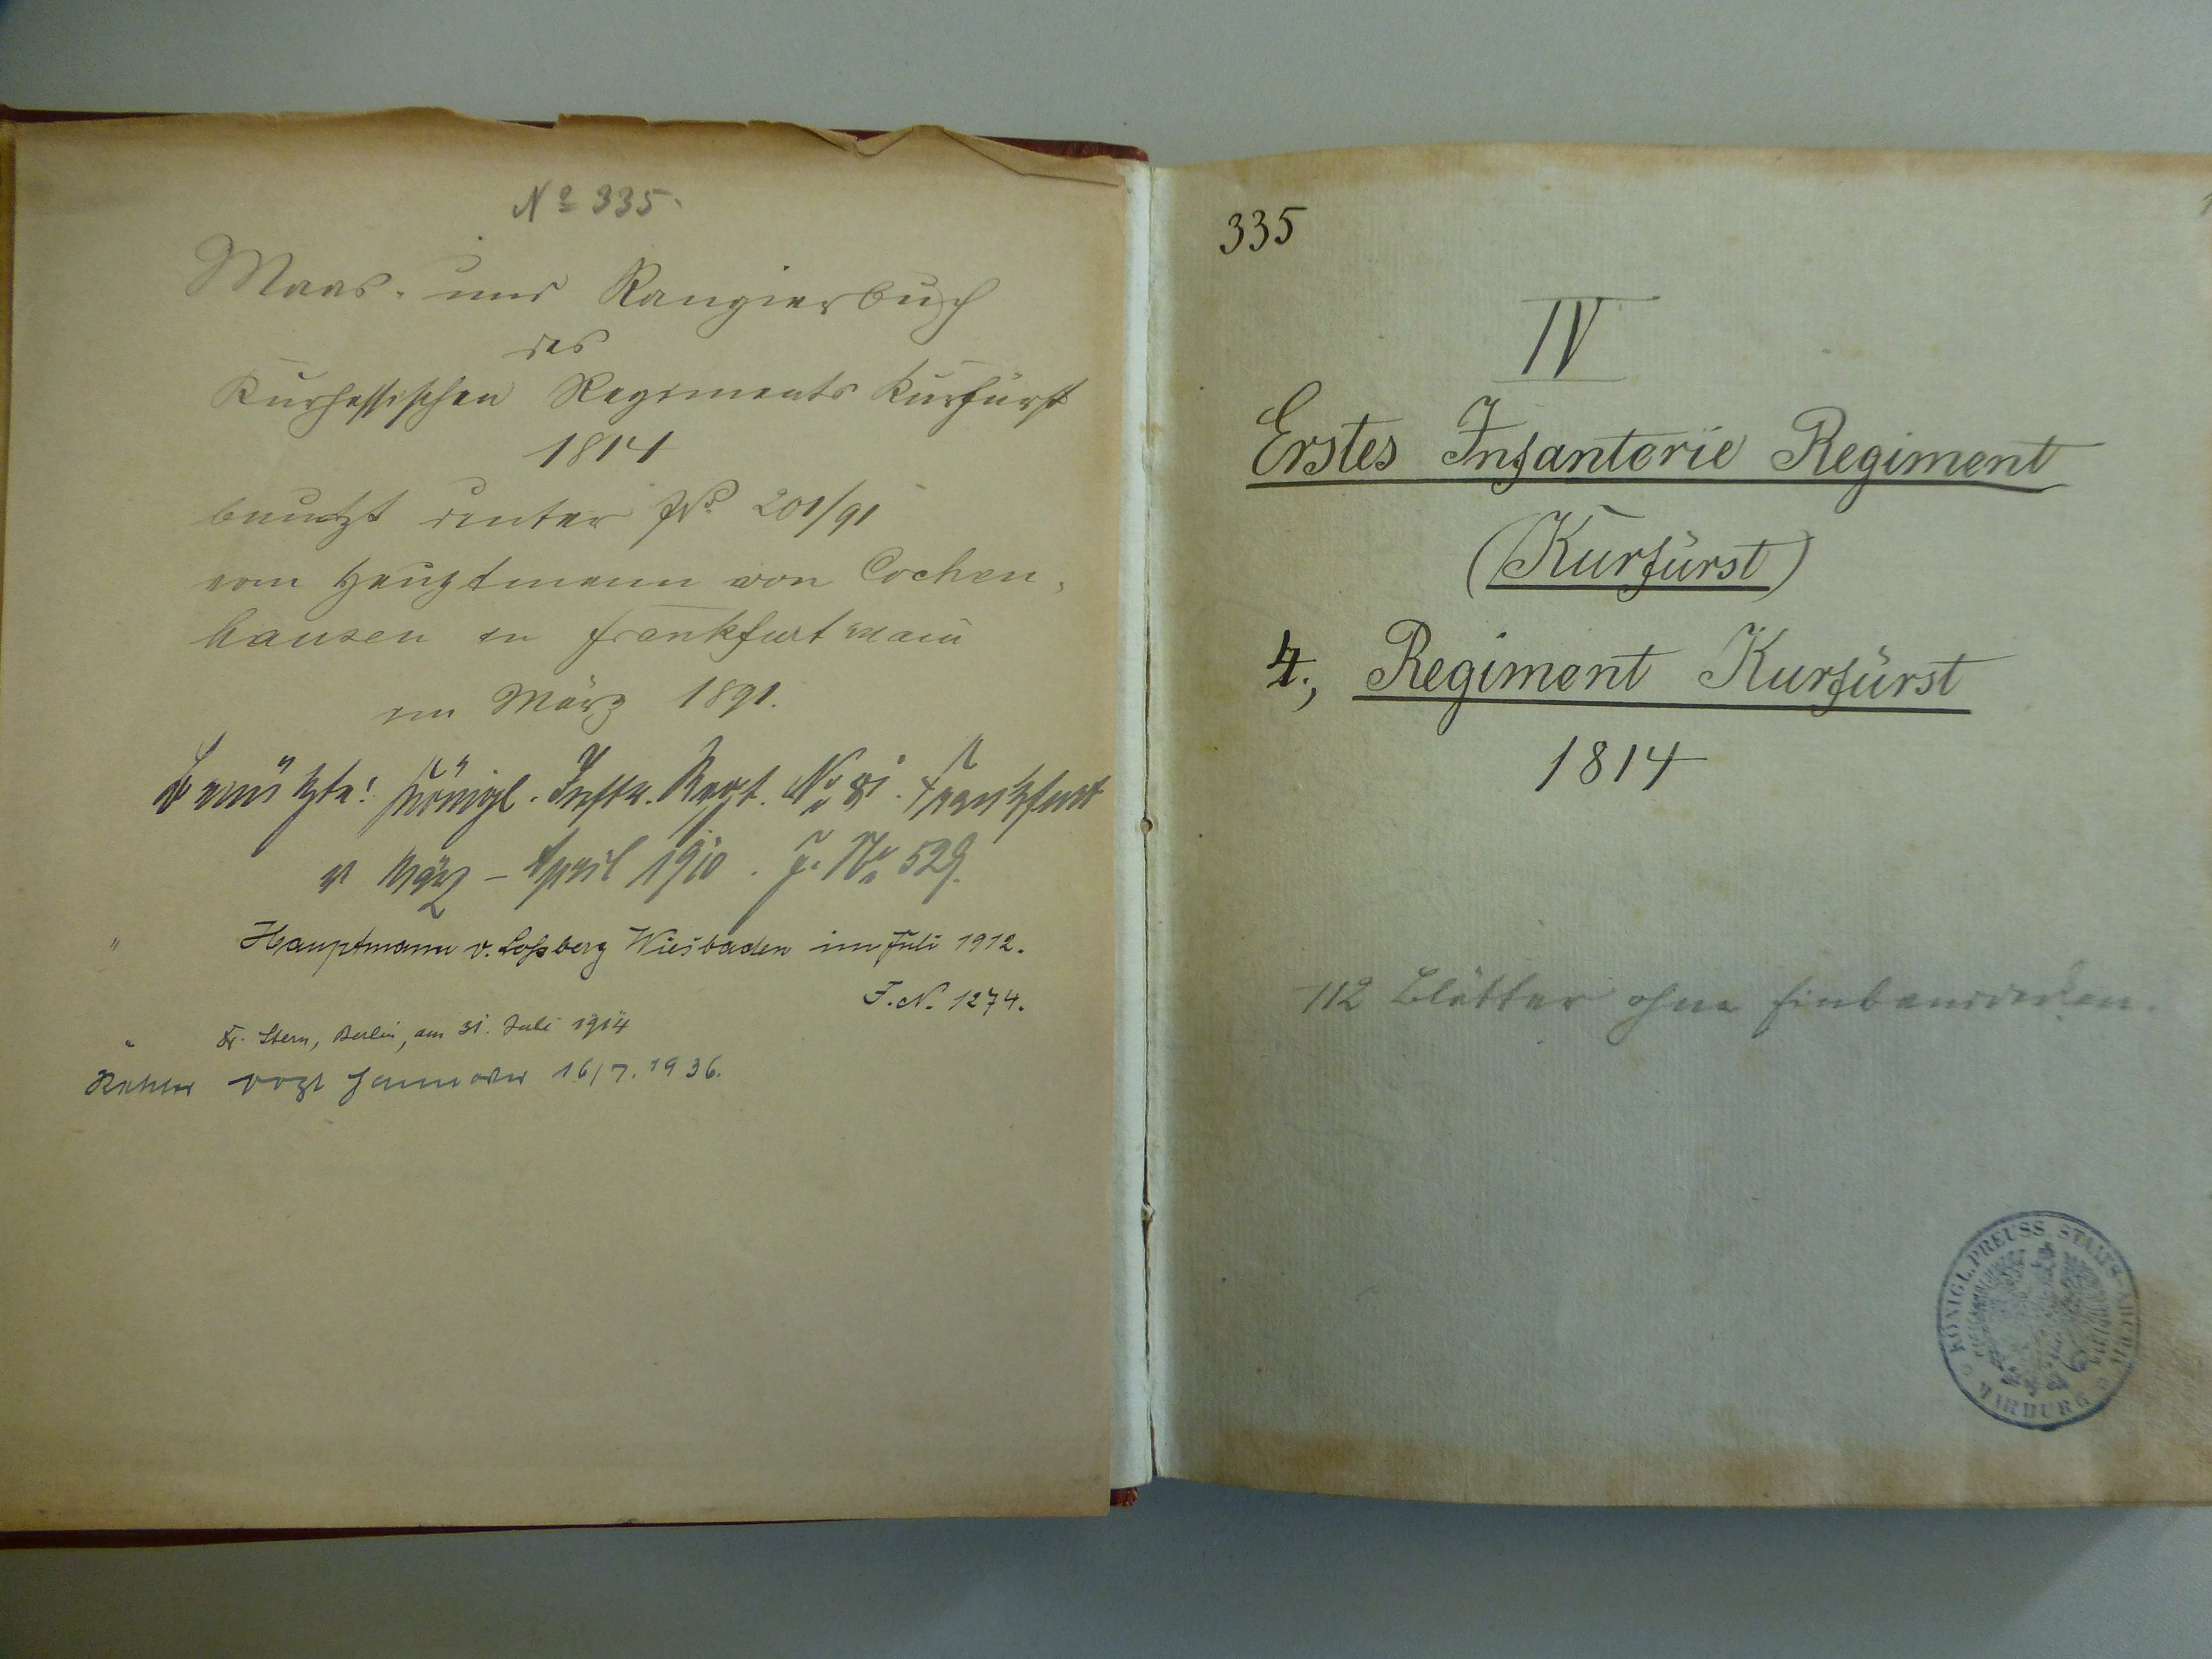 No 335.
Maas- und Rangierbuch
des
Kurhessischen Regiments Kurfürst
1814
benutzt unter No 201/91
vom Hauptmann von Cochen-
hausen in Frankfurt Main
im März 1891.
Benützt: Königl. Inftr. Regt. No 81. Frankfurt
März - April 1910. J. No 529.
" Hauptmann v. Loßberg Wiesbaden im Juli 1912.
J.N. 1274.
" Fr. Stern, Berlin, am 31. Juli 1914
Hannover 16/7. 1936.
335
IV
Erstes Infanterie Regiment
(Kurfürst)
4., Regiment Kurfürst
1814
112 Blätter ohne Einband
KÖNIGL. PREUSS. STAATS-ARCHIV
MARBURG